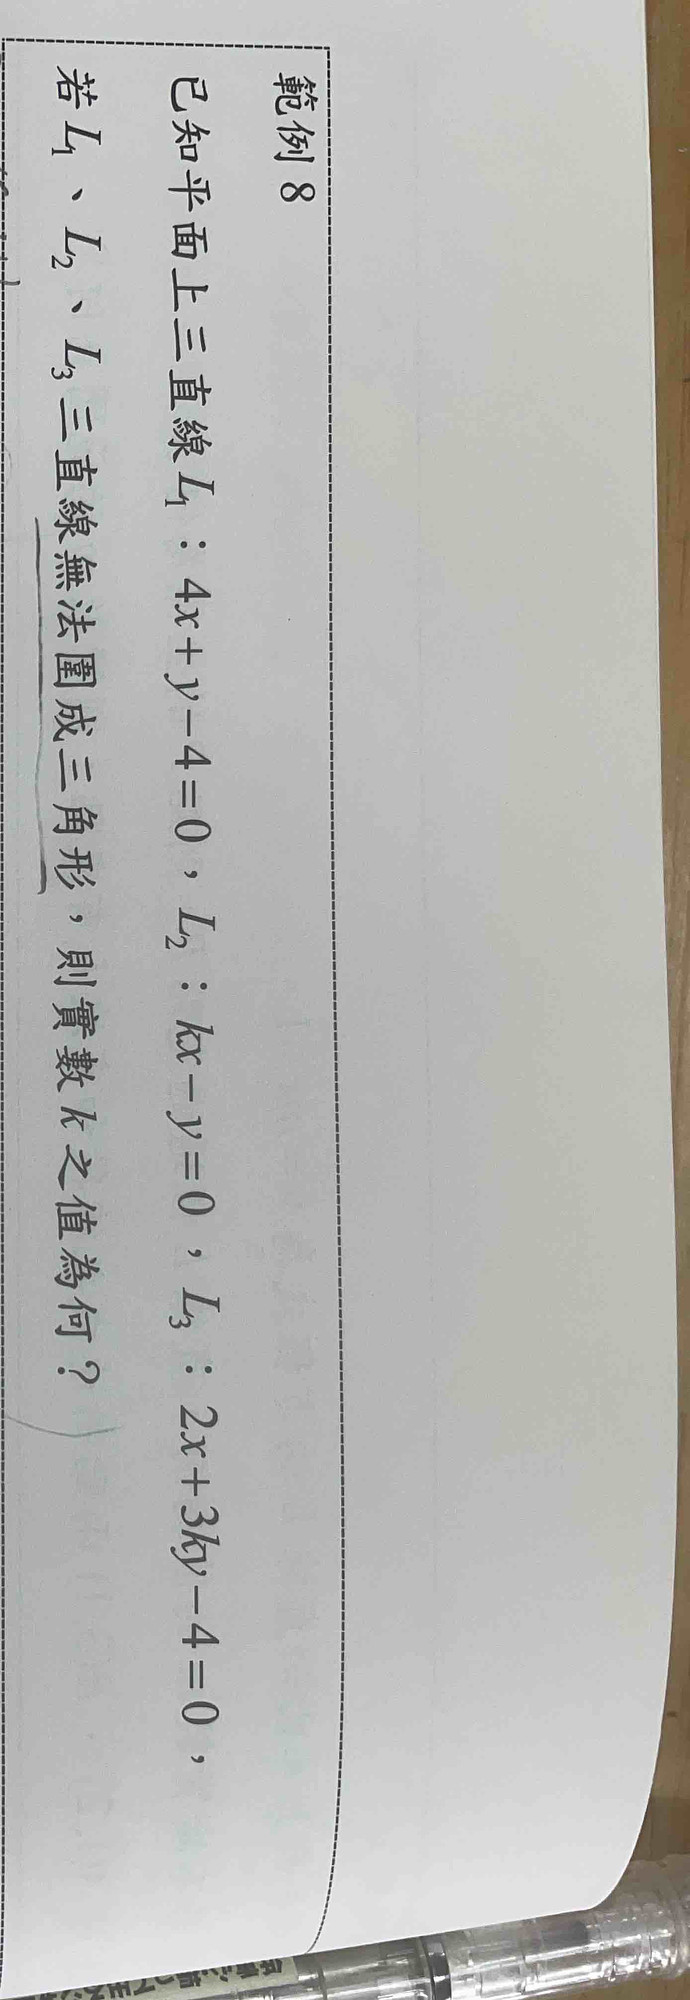 範例 8
已知平面上三直線 L₁：4x+y−4=0，L₂：kx−y=0，L₃：2x+3ky−4=0，
若 L₁、L₂、L₃ 三直線無法圍成三角形，則實數 k 之值為何？